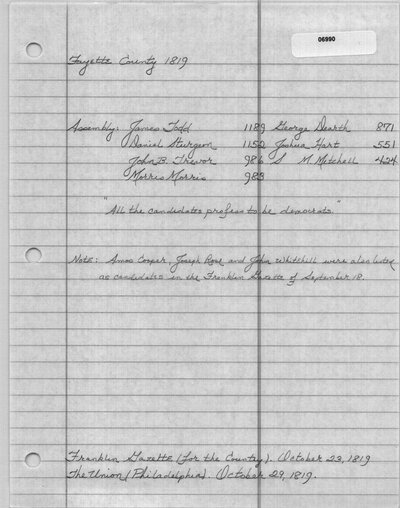 06990
Fayette County 1819
Assembly: James Todd 1189 George Dearth 871
Daniel Sturgeon 1152 Joshua Hart 551
John B. Trevor 986 S M Mitchell 424
Morris Morris 983
"All the candidates profess to be democrats."
Note: Amos Cooper, Joseph Rose and John Whitehill were also listed
as candidates in the Franklin Gazette of September 18.
Franklin Gazette (for the County). October 23, 1819
The Union (Philadelphia). October 29, 1819.